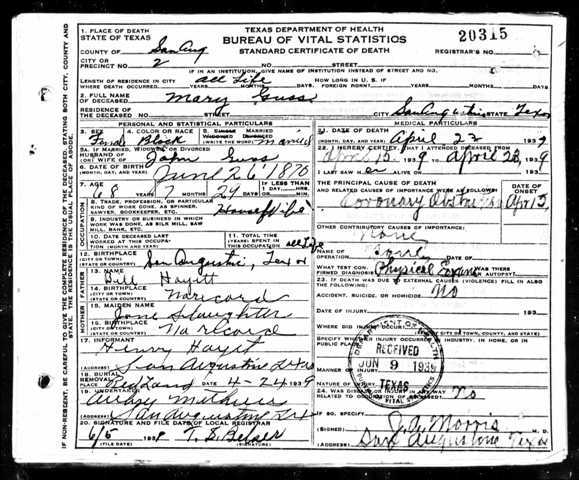 TEXAS DEPARTMENT OF HEALTH
BUREAU OF VITAL STATISTICS
STANDARD CERTIFICATE OF DEATH
20315
REGISTRAR'S NO.
1. PLACE OF DEATH
STATE OF TEXAS
COUNTY OF San Aug
CITY OR PRECINCT NO. 2
NO. STREET
IF IN AN INSTITUTION, GIVE NAME OF INSTITUTION INSTEAD OF STREET AND NO.
LENGTH OF RESIDENCE IN CITY WHERE DEATH OCCURRED. all Life YEARS MONTHS DAYS
HOW LONG IN U. S. IF OF FOREIGN BIRTH? YEARS MONTHS DAYS
2. FULL NAME OF DECEASED Mary Guss
RESIDENCE OF THE DECEASED NO. STREET CITY San Augustine STATE Texas
PERSONAL AND STATISTICAL PARTICULARS
3. SEX Female
4. COLOR OR RACE Black
5. SINGLE WIDOWED MARRIED DIVORCED (WRITE THE WORD) Married
5A. IF MARRIED, WIDOWED OR DIVORCED HUSBAND OF (OR) WIFE OF John Guss
6. DATE OF BIRTH (MONTH, DAY, AND YEAR) June 26 1870
7. AGE 68 YEARS MONTHS DAYS 24
IF LESS THAN 1 DAY, HRS. MIN.
8. TRADE, PROFESSION, OR PARTICULAR KIND OF WORK DONE, AS SPINNER, SAWYER, BOOKKEEPER, ETC. House Wife
9. INDUSTRY OR BUSINESS IN WHICH WORK WAS DONE, AS SILK MILL, SAW MILL, BANK, ETC.
10. DATE DECEASED LAST WORKED AT THIS OCCUPATION (MONTH AND YEAR)
11. TOTAL TIME (YEARS) SPENT IN THIS OCCUPATION all Life
12. BIRTHPLACE (CITY OR TOWN) (STATE OR COUNTRY) San Augustine, Tex
FATHER
13. NAME Will Hayett
14. BIRTHPLACE (CITY OR TOWN) (STATE OR COUNTRY) No record
MOTHER
15. MAIDEN NAME Jane Slaughter
16. BIRTHPLACE (CITY OR TOWN) (STATE OR COUNTRY) No record
17. INFORMANT Henry Hayet
(ADDRESS) San Augustine Texas
18. BURIAL REMOVAL PLACE Red Land DATE 4-24 1939
19. UNDERTAKER
(ADDRESS) San Augustine Tex
20. SIGNATURE AND FILE DATE OF LOCAL REGISTRAR
6/5 193
(FILE DATE) (REGISTRAR)
MEDICAL PARTICULARS
21. DATE OF DEATH (MONTH, DAY, AND YEAR) April 22 1939
22. I HEREBY CERTIFY, THAT I ATTENDED DECEASED FROM
April 15 1939 TO April 22, 1939
I LAST SAW HER ALIVE ON 193
THE PRINCIPAL CAUSE OF DEATH AND RELATED CAUSES OF IMPORTANCE WERE AS FOLLOWS:
DATE OF ONSET
Coronary Apr 15
OTHER CONTRIBUTORY CAUSES OF IMPORTANCE:
None
NAME OF OPERATION None
WHAT TEST CONFIRMED DIAGNOSIS? Physical Exam WAS THERE AN AUTOPSY?
23. IF DEATH WAS DUE TO EXTERNAL CAUSES (VIOLENCE) FILL IN ALSO THE FOLLOWING:
ACCIDENT, SUICIDE, OR HOMICIDE No
DATE OF INJURY: 193
WHERE DID INJURY OCCUR?
SPECIFY WHETHER INJURY OCCURRED IN INDUSTRY, IN HOME, OR IN PUBLIC PLACE.
MANNER OF INJURY
NATURE OF INJURY
24. WAS DISEASE OR INJURY IN ANY WAY RELATED TO OCCUPATION OF DECEASED? No
IF SO, SPECIFY
(SIGNED) J. A. Morris M. D.
(ADDRESS) San Augustine Texas
RECEIVED
JUN 9 1939
TEXAS